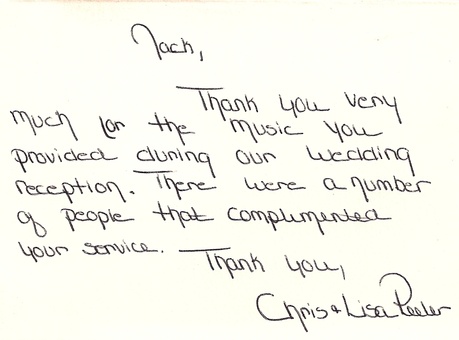 Jack,
Thank you very
much for the music you
provided during our wedding
reception. There were a number
of people that complimented
your service. Thank you,
Chris + Lisa Peeler